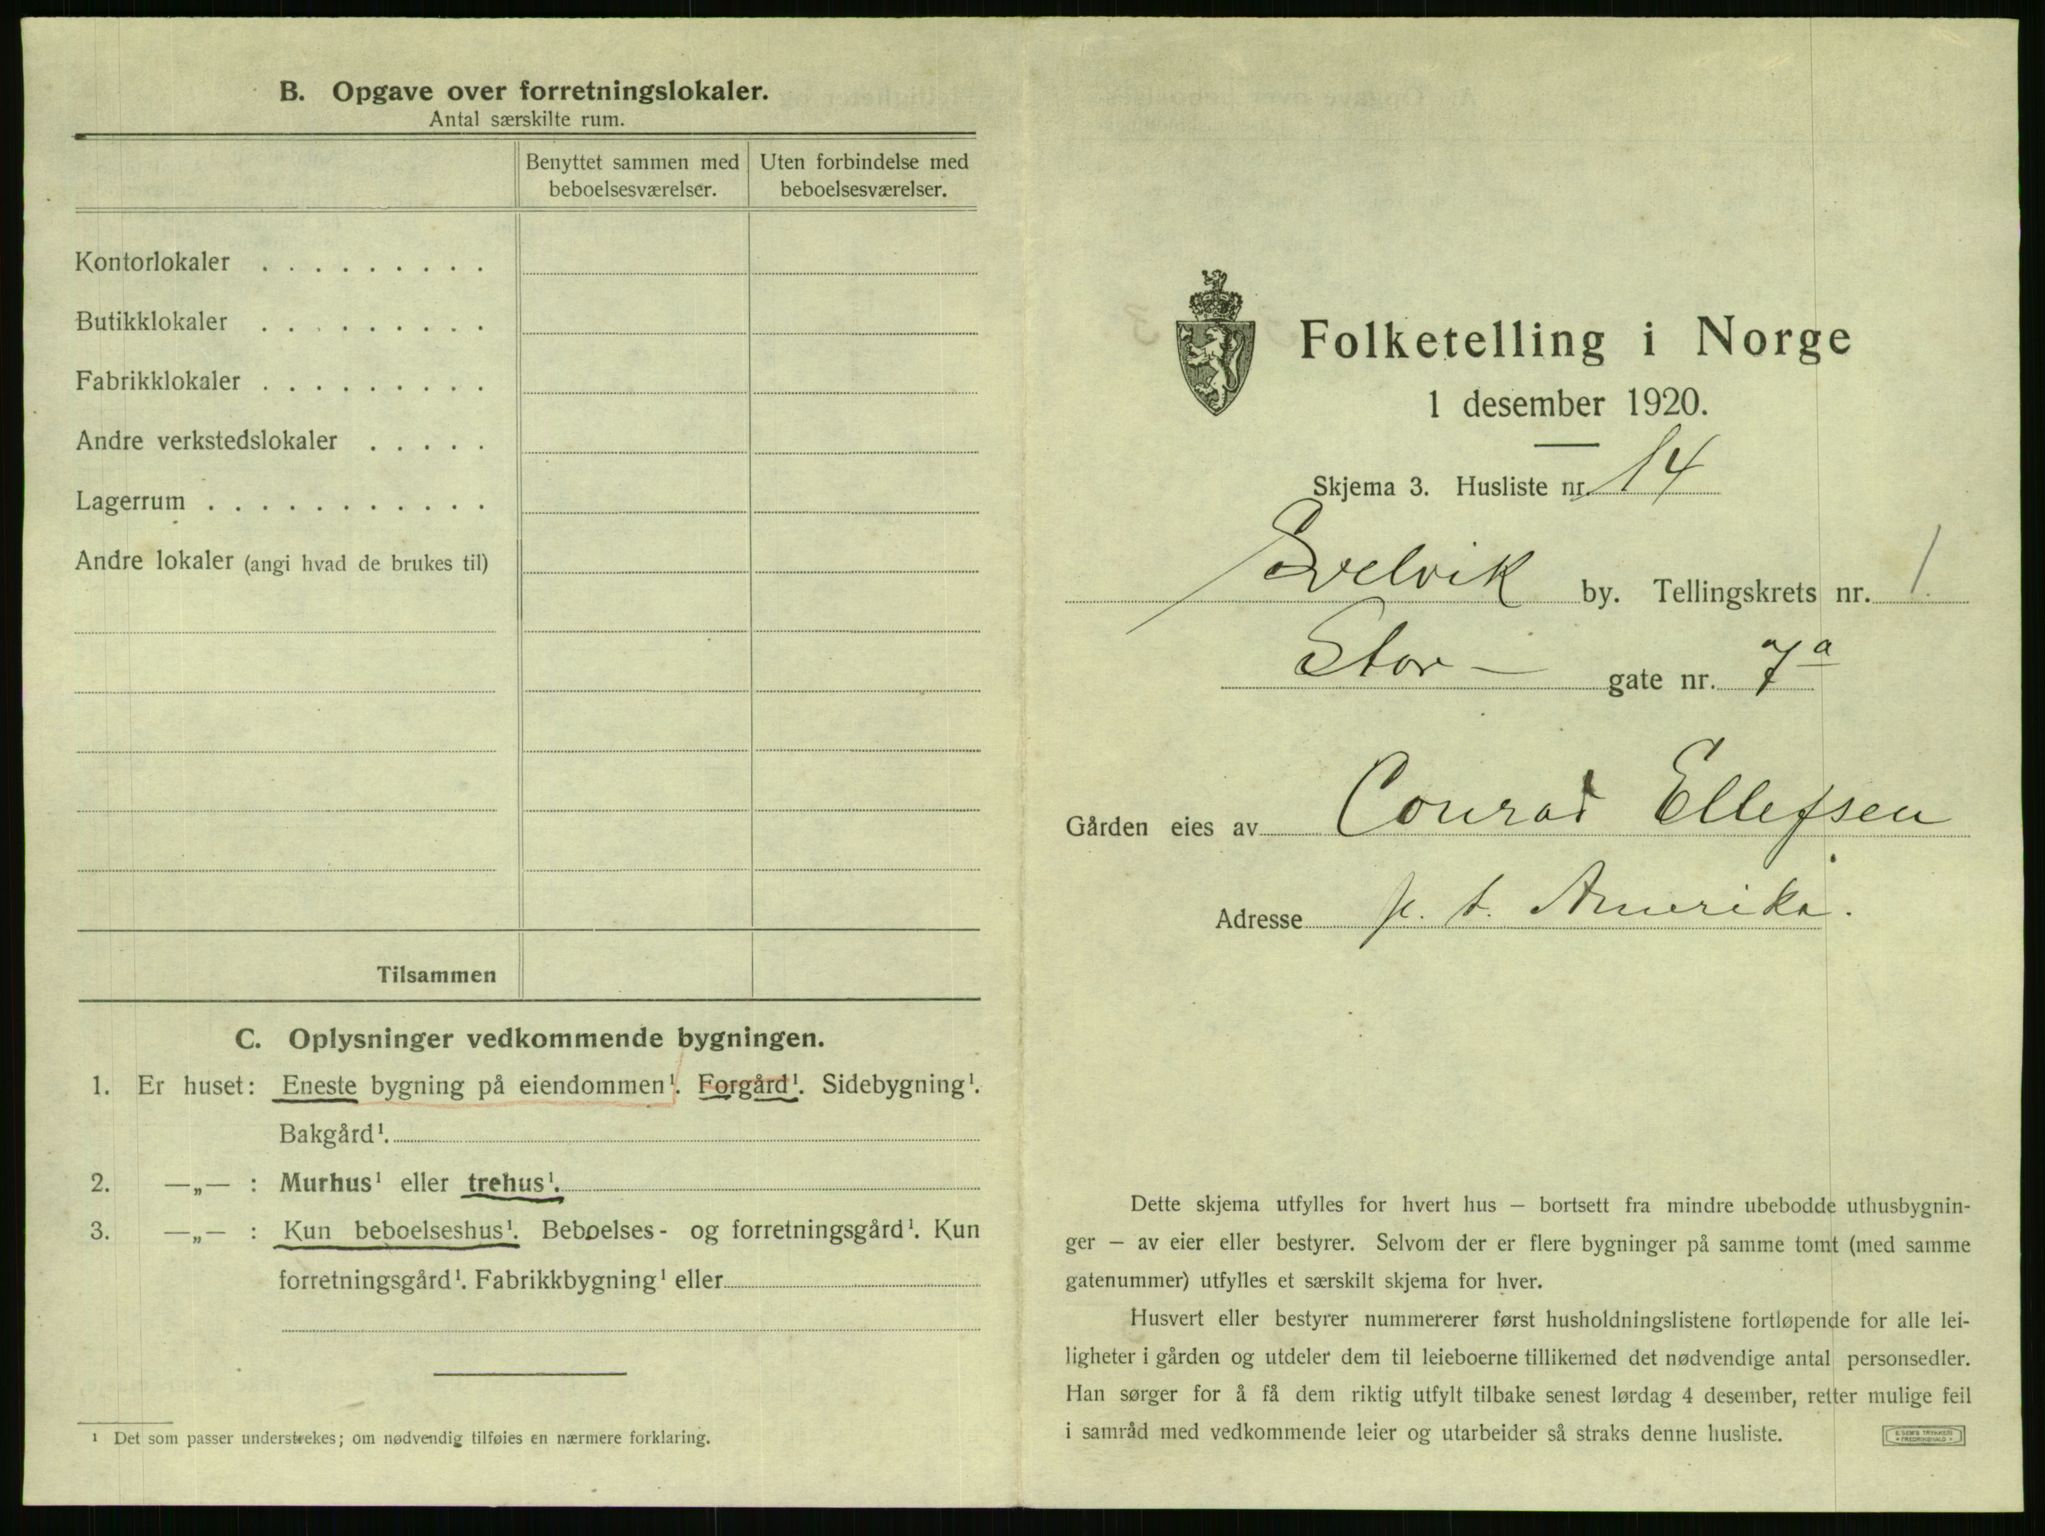 B. Opgave over forretningslokaler.
Antal særskilte rum.
Benyttet sammen med beboelsesværelser.
Uten forbindelse med beboelsesværelser.
Kontorlokaler . . . . . . . . .
Butikklokaler . . . . . . . . .
Fabrikklokaler . . . . . . . . .
Andre verkstedslokaler . . . . .
Lagerrum . . . . . . . . . . .
Andre lokaler (angi hvad de brukes til)
Tilsammen
C. Oplysninger vedkommende bygningen.
1. Er huset: Eneste bygning på eiendommen¹. Forgård¹. Sidebygning¹.
Bakgård¹.
2. —„— : Murhus¹ eller trehus¹.
3. —„— : Kun beboelseshus¹. Beboelses- og forretningsgård¹. Kun
forretningsgård¹. Fabrikkbygning¹ eller
¹ Det som passer understrekes; om nødvendig tilføies en nærmere forklaring.
Folketelling i Norge
1 desember 1920.
Skjema 3. Husliste nr. 14
Svelvik by. Tellingskrets nr. 1
Stor— gate nr. 7a
Gården eies av Conrad Ellefsen
Adresse p. t. Amerika.
Dette skjema utfylles for hvert hus — bortsett fra mindre ubebodde uthusbygnin-
ger — av eier eller bestyrer. Selvom der er flere bygninger på samme tomt (med samme
gatenummer) utfylles et særskilt skjema for hver.
Husvert eller bestyrer nummererer først husholdningslistene fortløpende for alle lei-
ligheter i gården og utdeler dem til leieboerne tillikemed det nødvendige antal personsedler.
Han sørger for å få dem riktig utfylt tilbake senest lørdag 4 desember, retter mulige feil
i samråd med vedkommende leier og utarbeider så straks denne husliste.